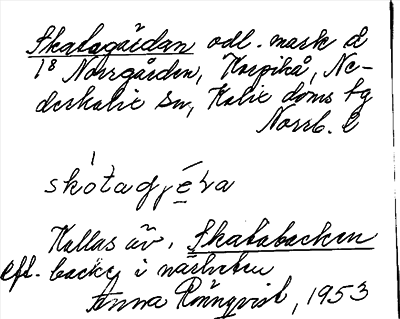 Skatagärdan odl. mark d
1⁸ Norrgården, Korpikå, Ne-
derkalix sn, Kalix doms tg
Norrb. l
skòtagję́ra
Kallas äv. Skatabacken
eft. backe i närheten
Anna Rönnqvist, 1953